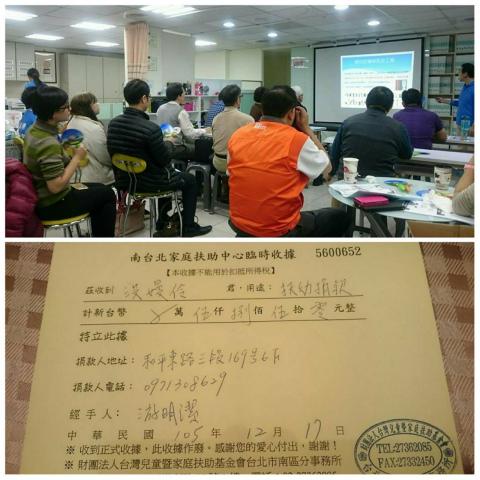 南台北家庭扶助中心臨時收據 5600652
【本收據不能用於扣抵所得稅】
茲收到 君,用途:扶幼捐款
計新台幣 萬 伍 仟 捌 佰 伍 拾 零 元整
特立此據
捐款人地址:和平東路三段169号6F
捐款人電話:0971308629
經手人:游明潔
中華民國 105 年 12 月 17 日
※ 收到正式收據,此收據作廢。感謝您的愛心付出,謝謝!
※ 財團法人台灣兒童暨家庭扶助基金會台北市南區分事務所
TEL:27362085
FAX:27332450